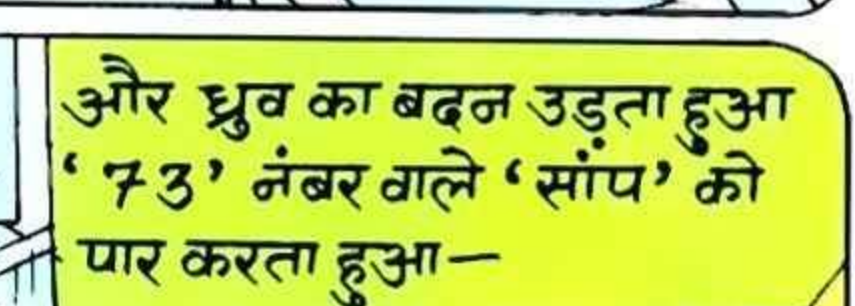 और ध्रुव का बदन उड़ता हुआ
‘73’ नंबर वाले ‘सांप’ को
पार करता हुआ—